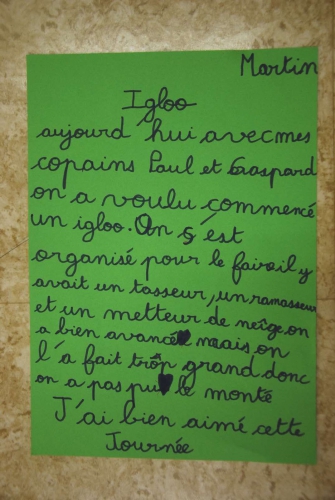 Martin
Igloo
aujourd hui avec mes
copains Paul et Gaspard
on a voulu commencé
un igloo. On s'est
organisé pour le faire il y
avait un tasseur, un ramasseur
et un metteur de neige, on
a bien avancé mais on
l'a fait trop grand donc
on a pas pu le monté
J'ai bien aimé cette
Journée